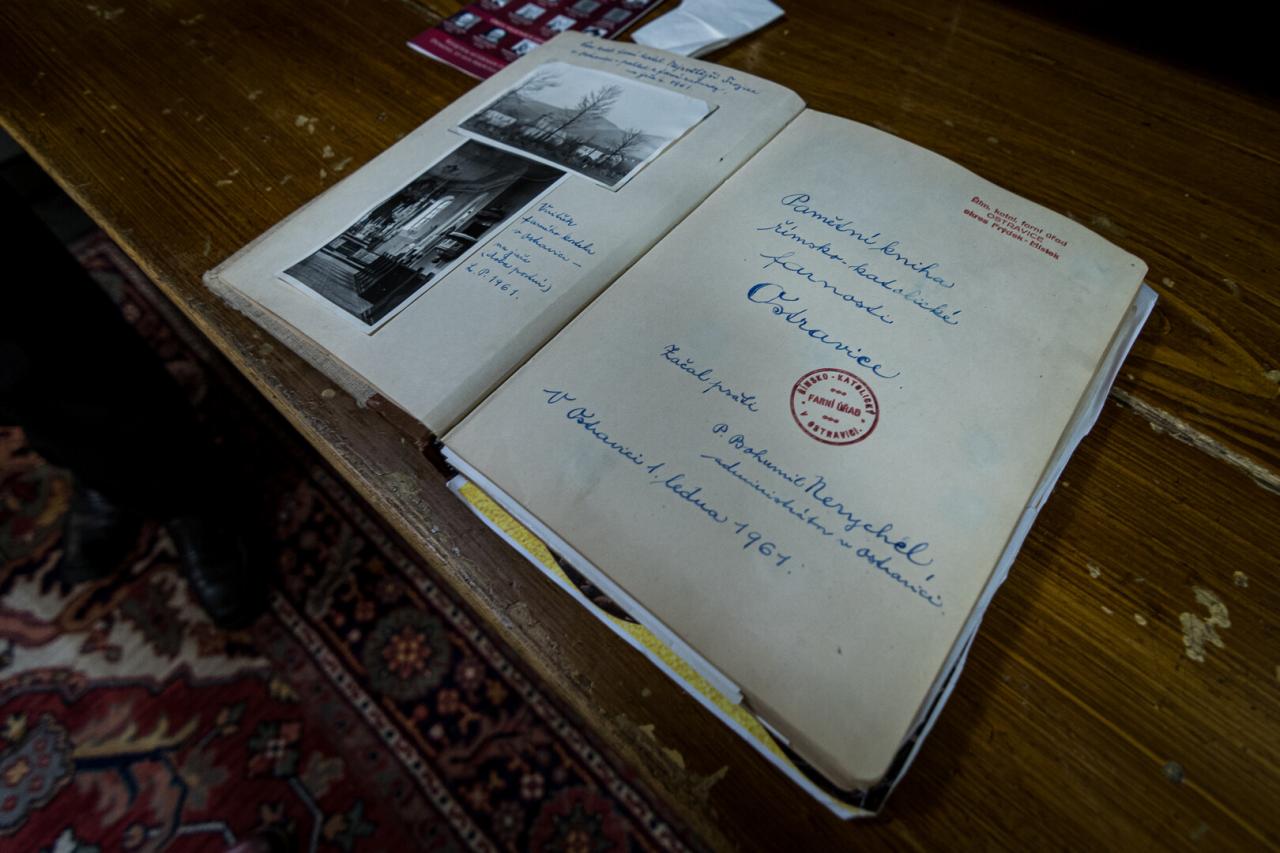 v Ostravici - pohled z farní zahrady,
Vnitřek
farního kostela
v Ostravici -
na jaře
(doba postní)
L. P. 1961.
Řím. katol. farní úřad
OSTRAVICE
okres Frýdek-Místek
Pamětní kniha
římsko-katolické
farnosti
Ostravice.
ŘÍMSKO-KATOLICKÝ
FARNÍ ÚŘAD
V OSTRAVICI.
Začal psáti
P. Bohumil Nerychel,
administrátor v Ostravici.
V Ostravici 1. ledna 1961.